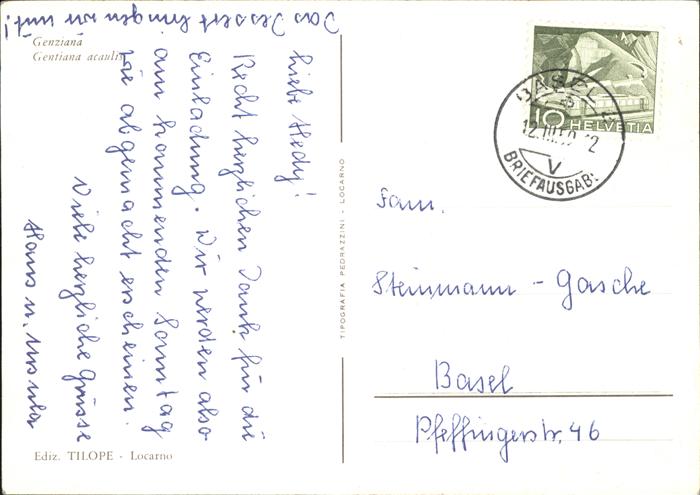 Genziana
Gentiana acaulis
Das Dessert bringen wir mit!
Liebe Hedy!
Recht herzlichen Dank für die
Einladung. Wir werden also
am kommenden Sonntag
wie abgemacht erscheinen.
Viele herzliche Grüsse
Hans u. Ursula
Ediz. TILOPE - Locarno
TIPOGRAFIA PEDRAZZINI - LOCARNO
10 HELVETIA
BASEL
12.III.
V
BRIEFAUSGABE
Fam.
Steinmann - Gasche
Basel
Pfeffingerstr. 46